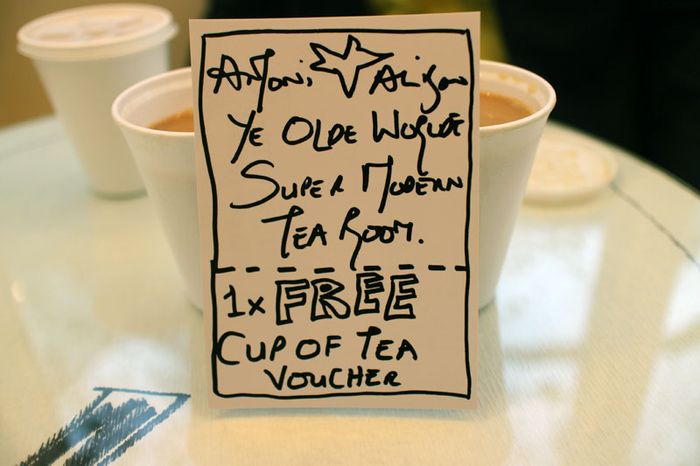 ANTONI ALISON
YE OLDE WORLDE
SUPER MODERN
TEA ROOM.
1x FREE
CUP OF TEA
VOUCHER